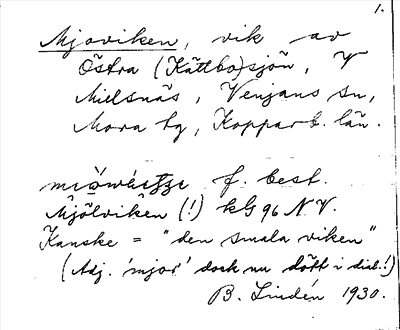 1.
Mjoviken, vik av
Östra (Kättbo)sjön, V
Mielsnäs, Venjans sn,
Mora tg, Kopparb. län.
f. best.
Mjölviken (!) kG 96 N.V.
Kanske = "den smala viken"
(Adj. 'mjor' dock nu dött i dial.!)
B. Lindén 1930.